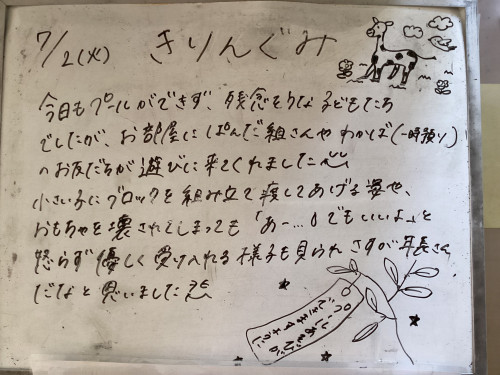 7/2(火) きりんぐみ
今日もプールができず、残念そうな子どもたち
でしたが、お部屋にぱんだ組さんやわかば(一時預り)
のお友だちが遊びに来てくれました
小さい子にブロックを組み立て渡してあげる姿や、
おもちゃを壊されてしまっても「あー…。でもいいよ」と
怒らず優しく受け入れる様子も見られさすが年長さん
だなと思いました